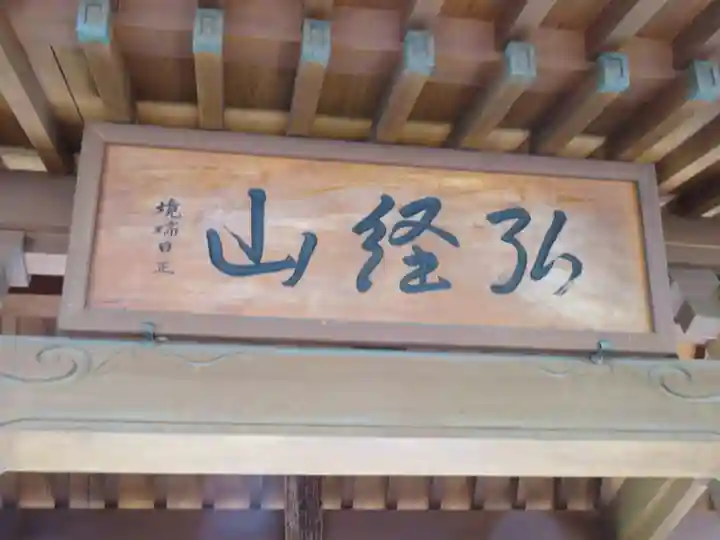 弘経山
境瑞日正